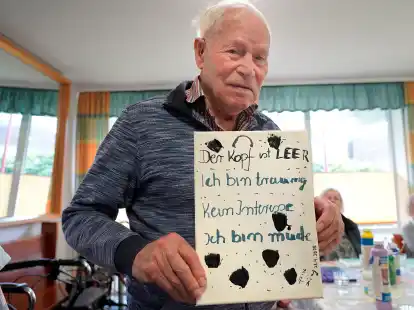 Der Kopf ist LEER
Ich bin traurig
Kein Interesse
Ich bin müde